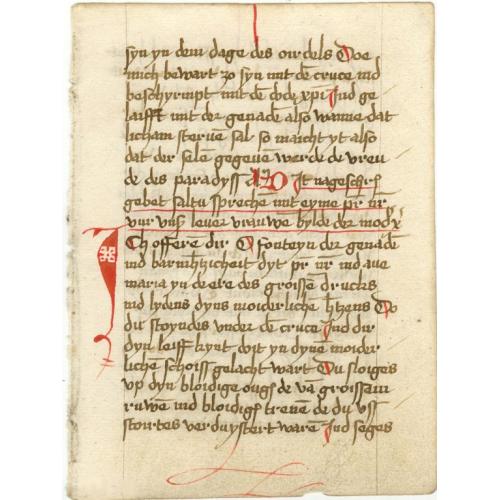 syn yn dem dage des oirdels Doe
mich bewart zo syn mit dē cruce ind
beschyrmpt mit dē dode xp̄i Ind ge
laifft mit der genadē also wannie dat
licham steruē sal so maicht yt also
dat der selē gegeuē werde de vreu
de des paradyss Dit nageschreſ
gebet saltu sprechē mit eyme pr̄ nr̄
vur vnſ leuer vrauwe bylde der mod
Ich offere dir O fonteyn der genadē
ind barmh̄tzicheit dyt pr̄ nr̄ ind aue
maria yn de ere des groissē drucks
ind lydens dyns moiderlichē h̄tzens Do
du stoyndes vnder dē cruce Ind dir
dyn leiff kynt doit yn dynē moider
lichē schoiss gelacht wart Du sloiges
vp dyn bloidige ougē de vā groissem
ruwen ind bloidigē trenē de du vſſ
stortes verduystert warē Ind seges